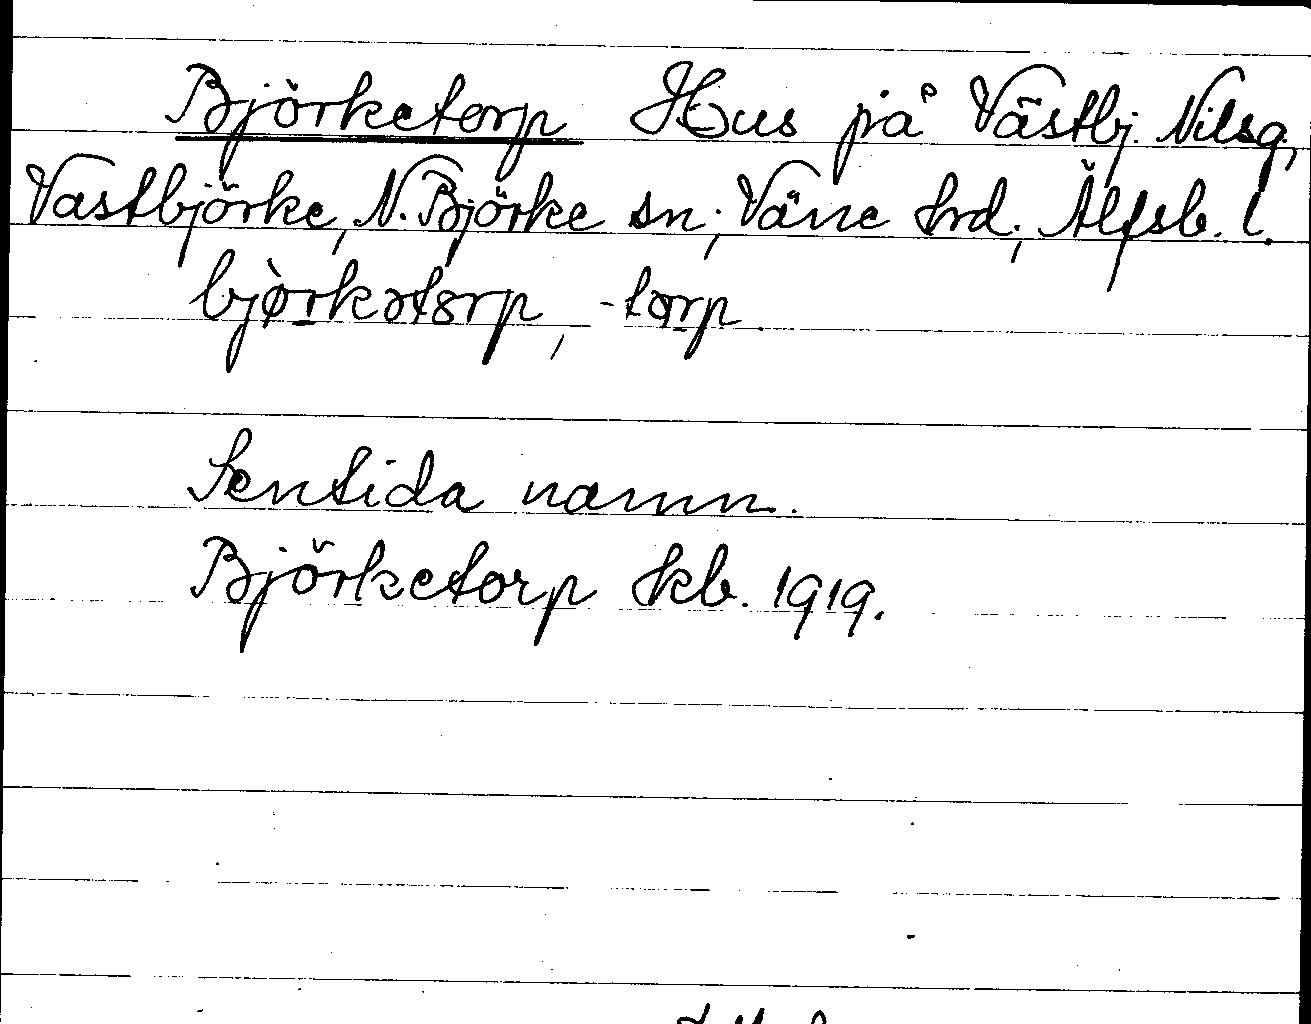 Björketorp Hus på Västbj. Nilsg.,
Västbjörke, N. Björke sn, Väne hd, Älfsb. l.
bjørkətorp, -tɑrp
Sentida namn.
Björketorp kb. 1919.